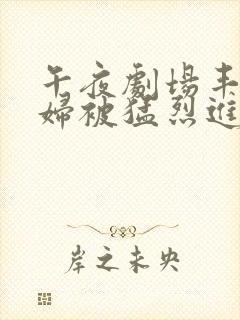 午夜劇場丰
婦被猛烈進
岸之未央